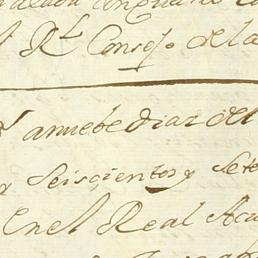 l R.l Consejo de la
anuebe dias del
y Seiscientos y Sete
En el Real Acu